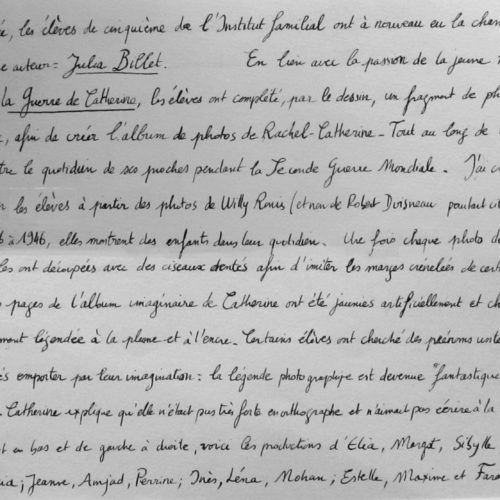 les élèves de cinquième de l'Institut familial ont à nouveau eu la chan
e auteur: Julia Billet. En lien avec la passion de la jeune
la Guerre de Catherine, les élèves ont complété, par le dessin, un fragment de ph
, afin de créer l'album de photos de Rachel-Catherine - Tout au long de
tre le quotidien de ses proches pendant la Seconde Guerre Mondiale. J'ai c
les élèves à partir des photos de Willy Ronis (et non de Robert Doisneau pourtant cit
à 1946, elles montrent des enfants dans leur quotidien. Une fois chaque photo de
les ont découpées avec des ciseaux dentés afin d'imiter les marges crénelées de cert
pages de l'album imaginaire de Catherine ont été jaunies artificiellement et ch
ment légendée à la plume et à l'encre. Certains élèves ont cherché des prénoms usité
és emporter par leur imagination : la légende photographique est devenue "fantastique
Catherine explique qu'elle n'était pas très forte en orthographe et n'aimait pas écrire à la
t en bas et de gauche à droite, voici les productions d'Elia, Margot, Sibylle
ia ; Jeanne, Amjad, Perrine ; Inès, Léna, Mohan ; Estelle, Maxime et Fara